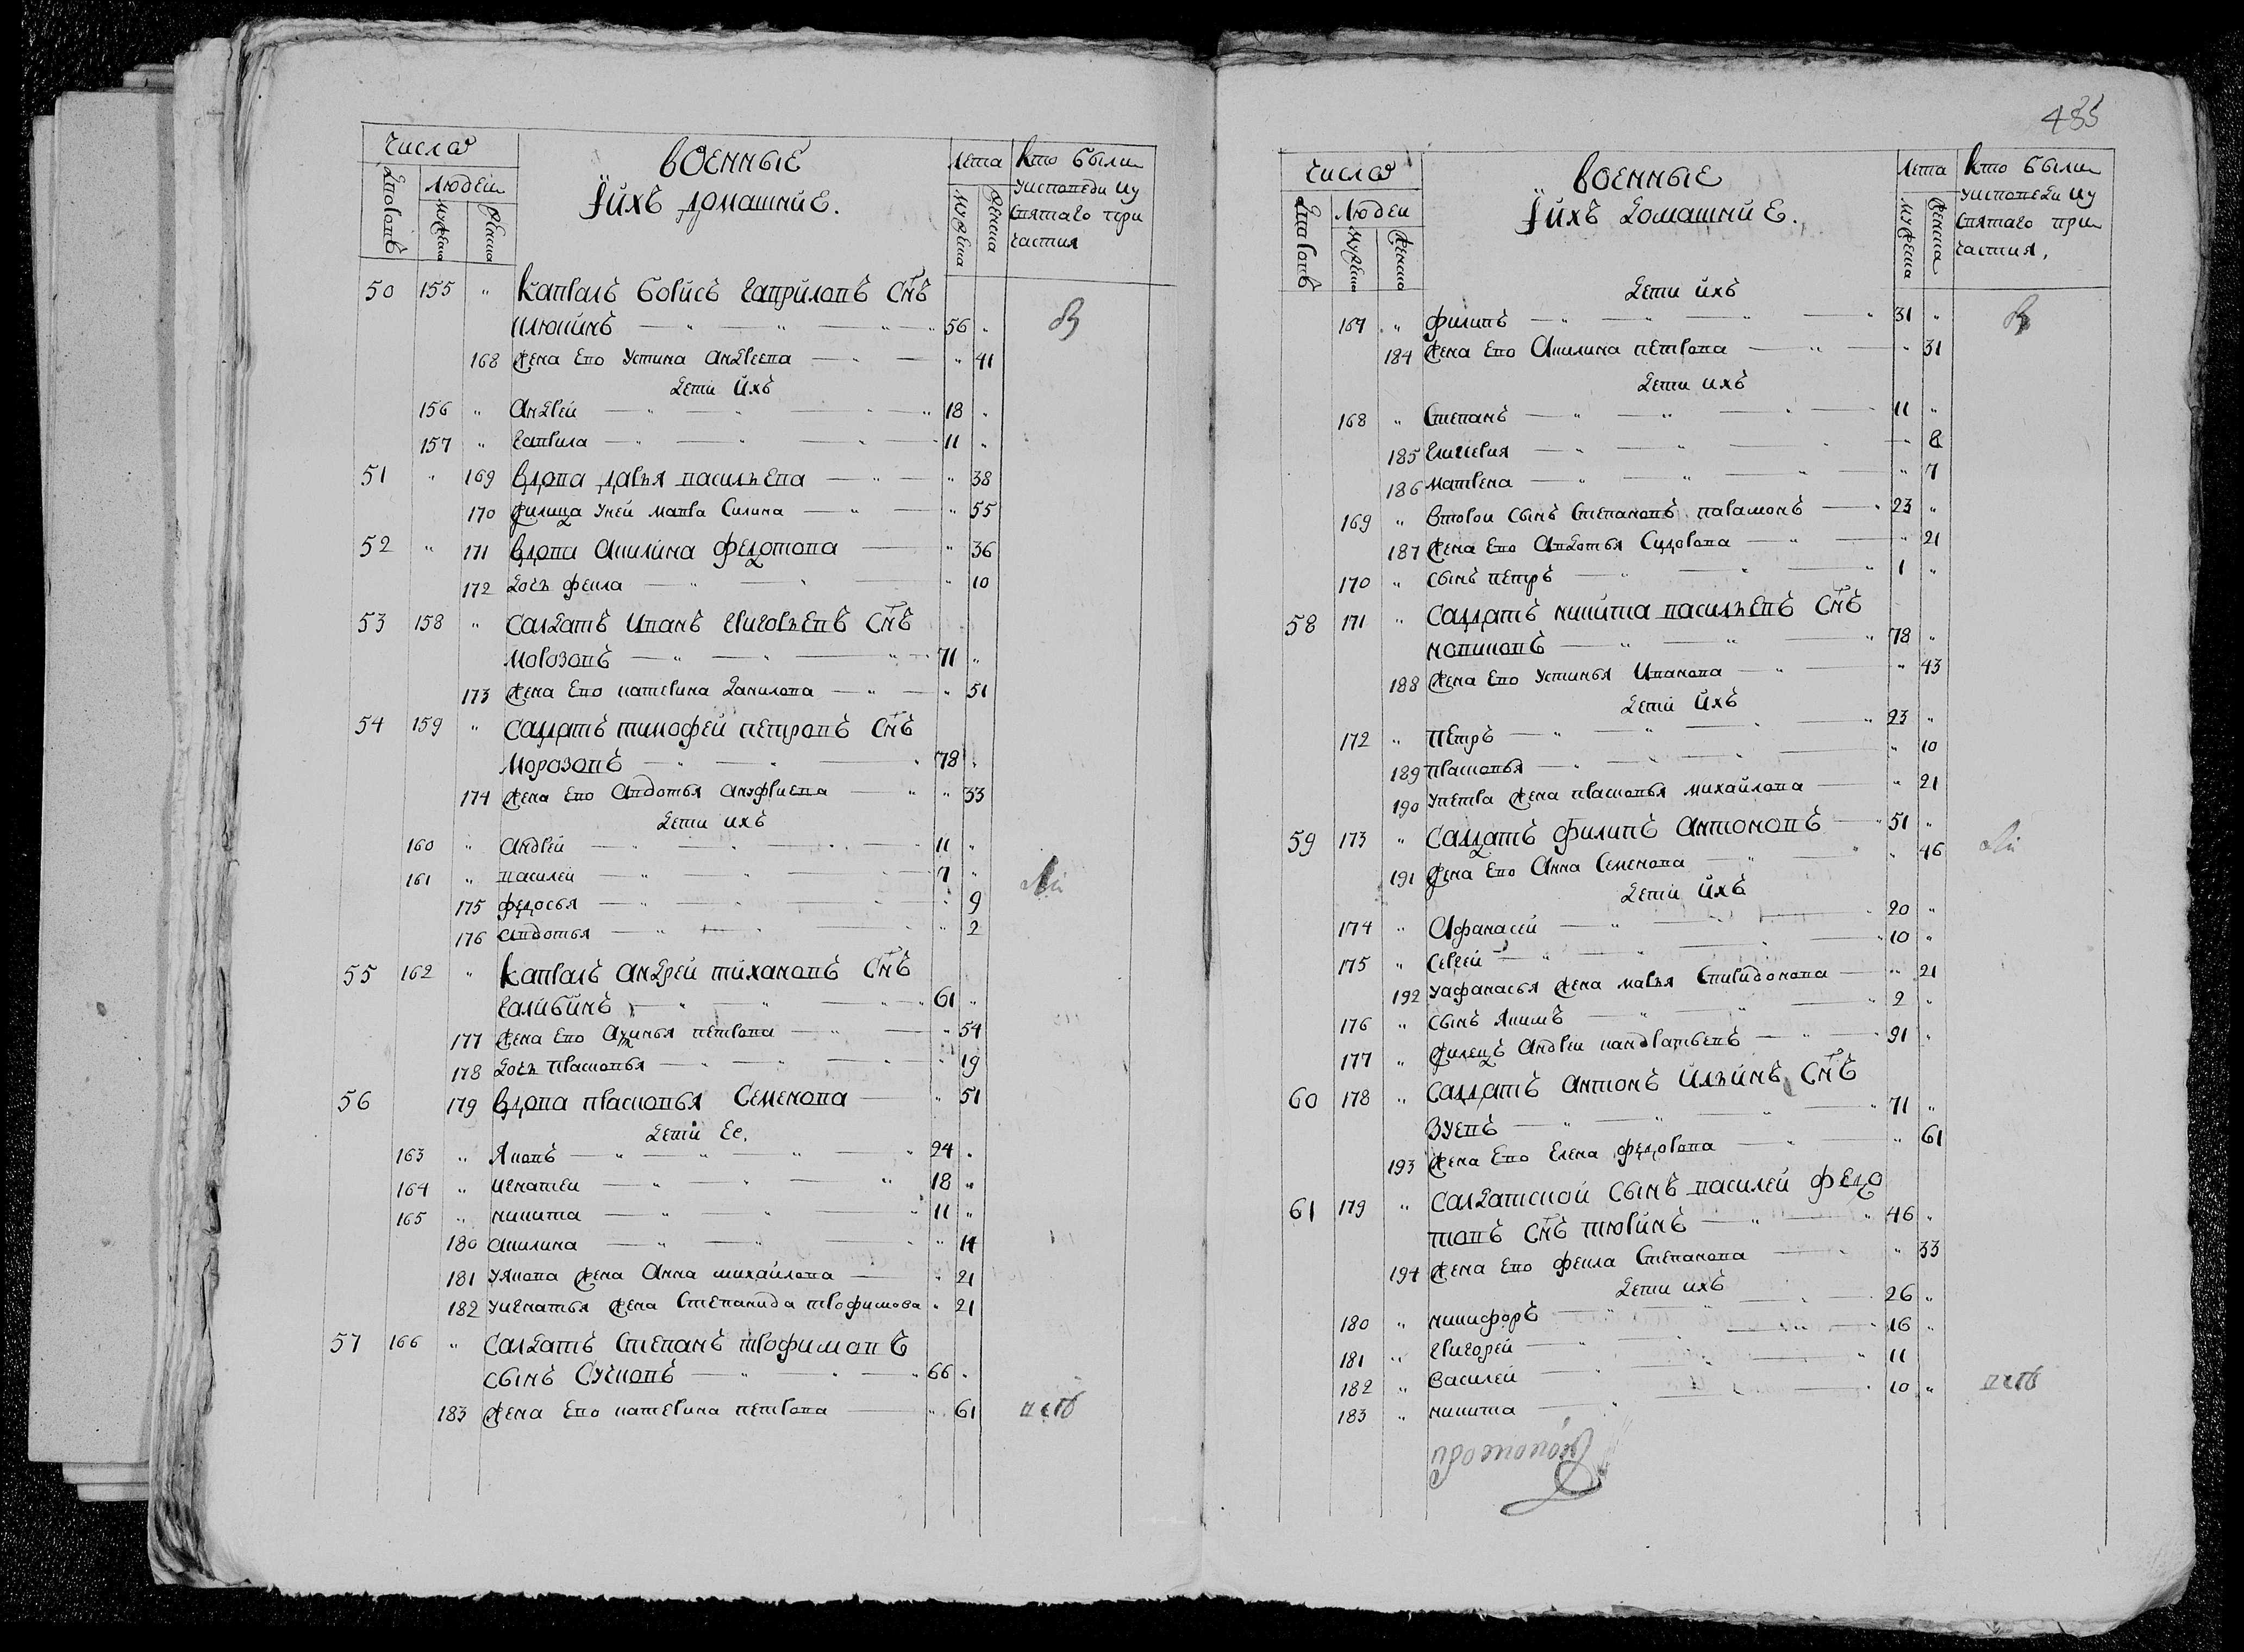 числа
дворовъ
людеи
мужеска
женска
военные
и ихъ домашние.
лета
мужеска
женска
кто были
у исповеди и у
святаго при
частия
50 155 " Капралъ Борисъ Гавриловъ снъ
илюкинъ 56 "
168 жена ево Устина Андреева " 41
дети ихъ
156 " Андрей 18 "
157 " Гаврила 11 "
51 " 169 вдова Дарья Васильева " 38
170 жилица у ней Мавра Силина " 55
52 " 171 вдова Акилина Федотова " 36
172 дочь Фекла " 10
53 158 " Салдатъ Иванъ Григорьевъ снъ
Морозовъ 71 "
173 жена ево Катерина Данилова " 51
54 159 " Салдатъ Тимофей Петровъ снъ
Морозовъ 78 "
174 жена ево Авдотья Ануфриева " 33
дети ихъ
160 " Андрей 11 "
161 " Василей 7 "
175 Федосья " 9
176 Авдотья " 2
55 162 " Капралъ Андрей Тихановъ снъ
Галибинъ 61 "
177 жена ево Аѯинья Петрова " 54
178 дочь Прасковья " 19
56 179 вдова Прасковья Семенова " 51
дети ее.
163 " Яковъ 24 "
164 " Игнатеи 18 "
165 " Никита 11 "
180 Акилина " 14
181 у Якова жена Анна Михайлова " 21
182 у Игнатья жена Степанида Трофимова " 21
57 166 " Салдатъ Степанъ Трофимовъ
сынъ Сучковъ 66 "
183 жена ево Катерина Петрова " 61
485
числа
дворовъ
людеи
мужеска
женска
военные
и ихъ домашние.
лета
мужеска
женска
кто были
у исповеди и у
святаго при
частия.
дети ихъ
167 " Филипъ 31 "
184 жена ево Акилина Петрова " 31
дети ихъ
168 " Степанъ 11 "
185 Глигерия " 8
186 Матрена " 7
169 " второи сынъ Степановъ Парамонъ 23 "
187 жена ево Авдотья Сидорова " 21
170 " сынъ Петръ 1 "
58 171 " Салдатъ Никита Васильевъ снъ
Новиковъ 78 "
188 жена ево Устинья Иванова " 43
дети ихъ
172 " Петръ 23 "
189 Прасковья " 10
190 у Петра жена Прасковья Михайлова " 21
59 173 " Салдатъ Филипъ Антоновъ 51 "
191 жена ево Анна Семенова " 46
дети ихъ
174 " Афанасей 20 "
175 " Сергей 10 "
192 у Афанасья жена Марья Спиридонова " 21
176 " сынъ Якимъ 2 "
177 " жилецъ Андреи Кандратьевъ 91 "
60 178 " Салдатъ Антонъ Ильинъ снъ
Зуевъ 71 "
193 жена ево Елена Федорова " 61
61 179 " Салдатской сынъ Василей Федо
товъ снъ Тюринъ 46 "
194 жена ево Фекла Степанова " 33
дети ихъ
180 " Никифоръ 26 "
181 " Григорей 16 "
182 " Василей 11
183 " Никита 10 "